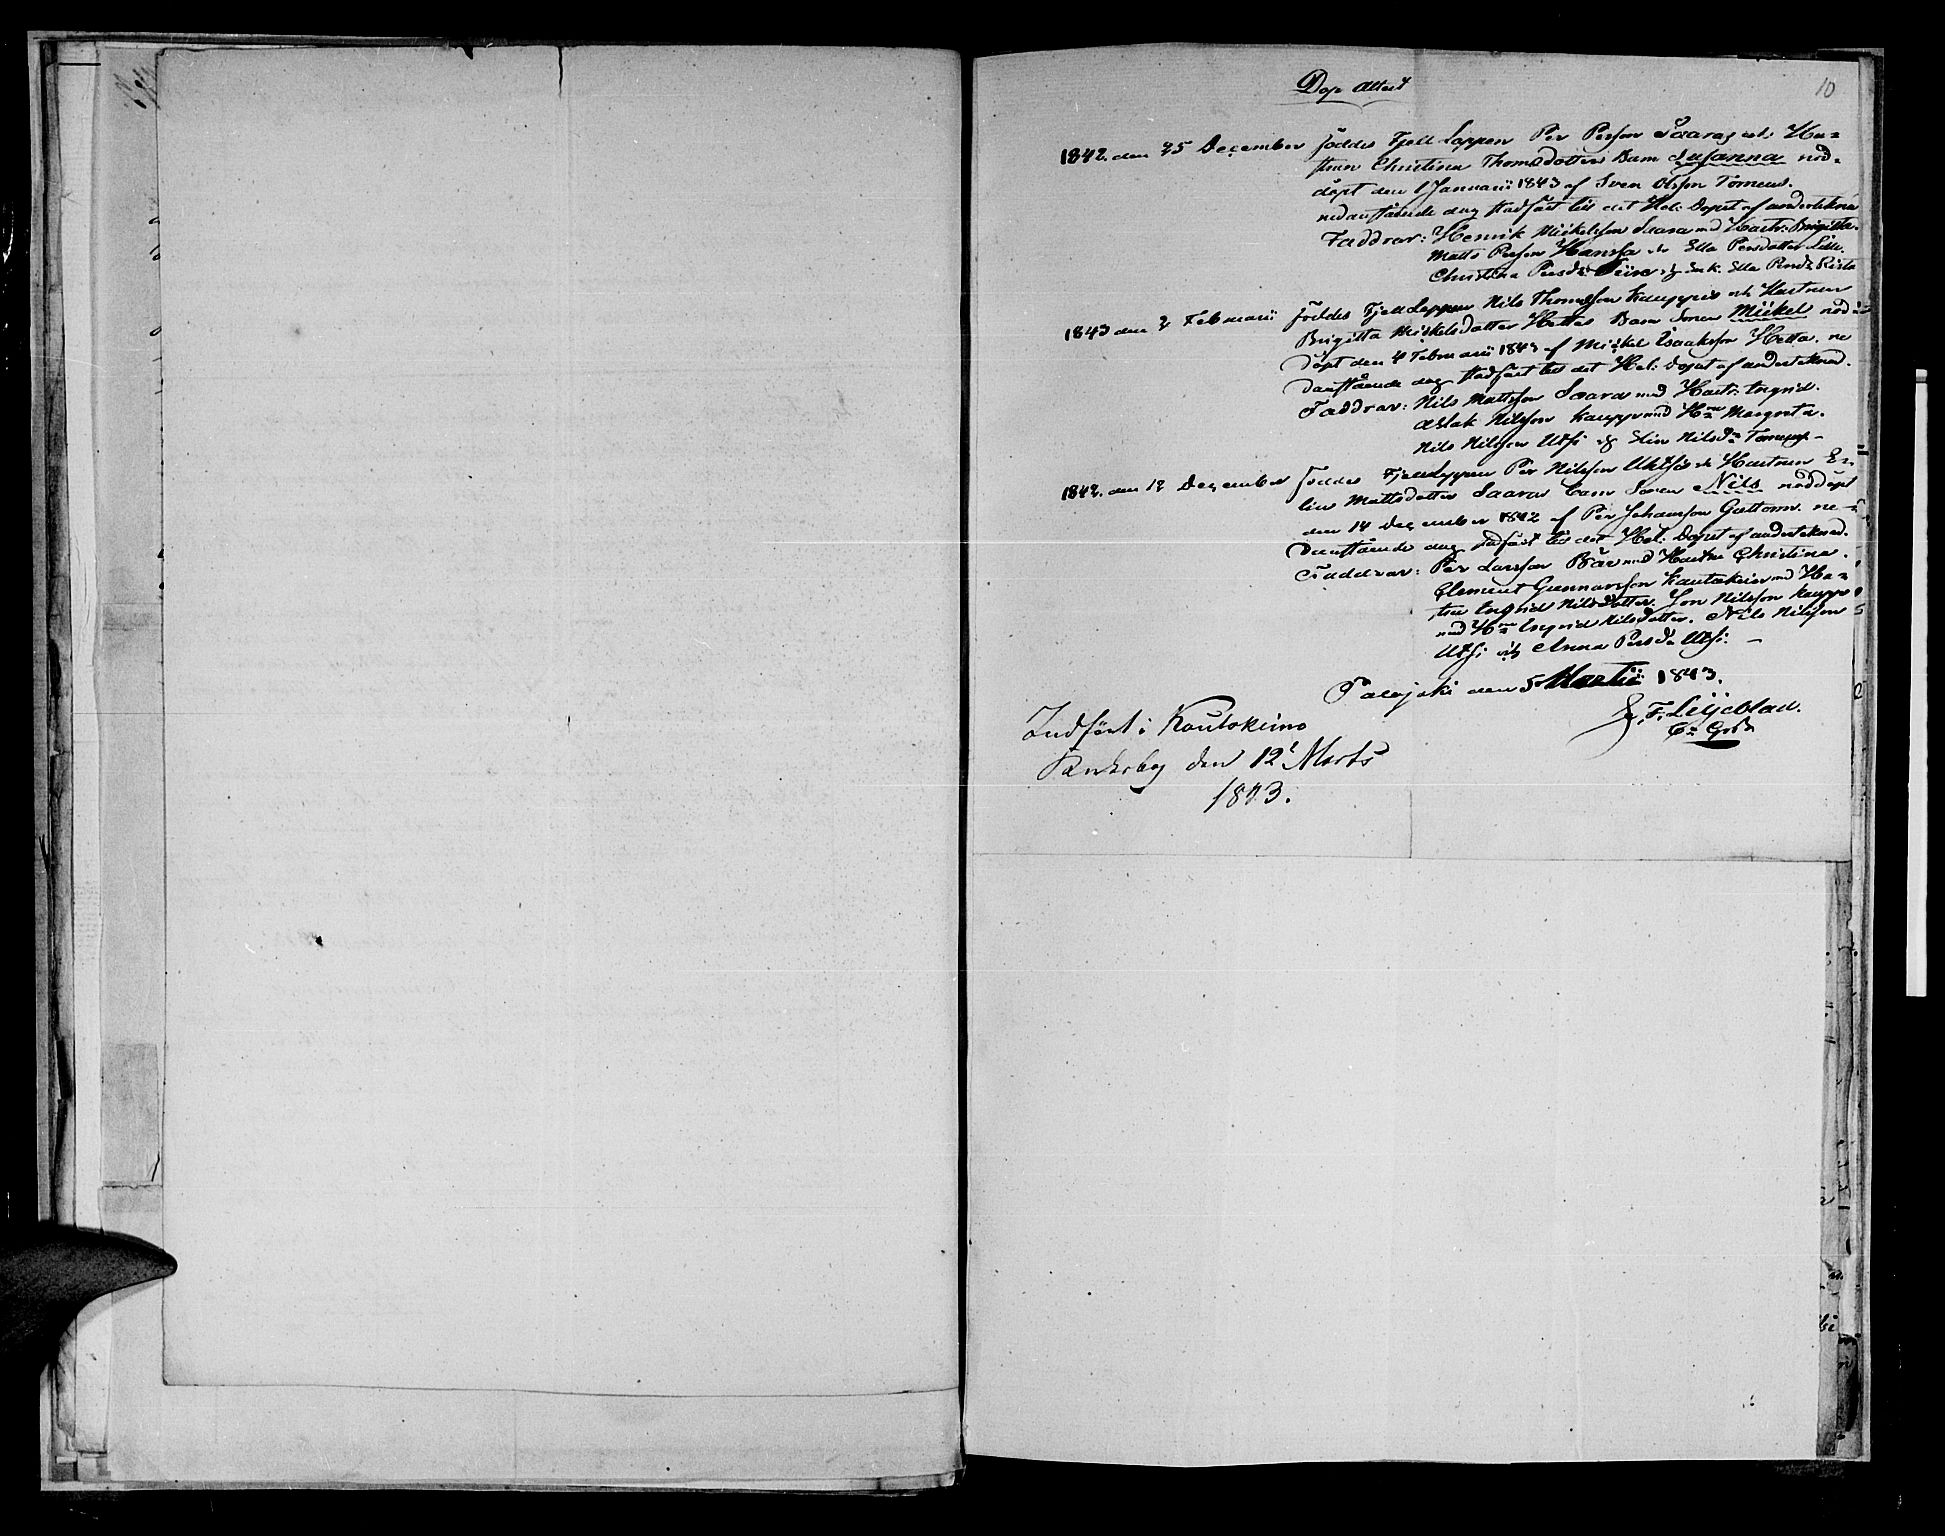 10
Dop Attest
1842. den 25 December föddes Fjell Lappen Per Persson Saaras och Hu-
strun Christina Thomsdotters Barn Susanna nöd-
döpt den 1 Januarii 1843 af Sven Olsson Tornens.
nedanstående dag stadfäst till det Hel: Dopet af undertekna
Faddrar: Henrik Mickelsson Saara med Hustr: Brigitta.
Matts Persson Hansa och Ella Persdotter
Christina Persdr och Enk. Ella Persdr
1843 den 2 Februarii föddes Fjell Lappen Nils Thomsson Kauppis och Hustrun
Brigitta Mickelsdotter Hettas Barn Sonen Mickel nöd
döpt den 4 Februarii 1843 af Mickel Isaaksson Hetta. ne
danstående dag stadfäst till det Hel: Dopet af underteknad.
Faddrar: Nils Mattsson Saara med Hustr: Ingrid.
Aslak Nilsson Kauppi med Hu Margreta.
Nils Nilsson Utsi och Elin Nilsdr
1842. den 12 December föddes Fjellappen Per Nilsson Uhtsi och Hustrun E-
lin Mattsdotter Saaras barn Sonen Nils nöddöpt
den 14 December 1842 af Per Johansson Gottorm. ne-
danstående dag stadfäst till det Hel: Dopet af underteknad.
Faddrar: Per Larsson Bär med Hustru Christina.
Clement Gunnarsson Kautokeino med Hu-
stru Ingrid Nilsdotter. Jon Nilsson Kauppi
med Hu Ingrid Nilsdotter. Nils Nilsson
Utsi och Anna Persdr Utsi. —
Palojoki den 5 Martii 1843.
F. Liljeblad.
Indført i Koutokeino
Kirkebog den 12t Marts
1843.